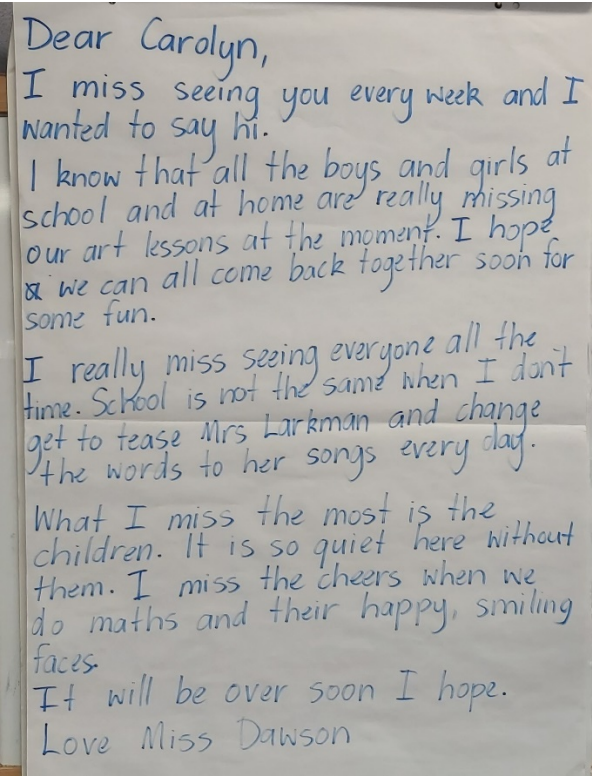 Dear Carolyn,
I miss seeing you every week and I
wanted to say hi.
I know that all the boys and girls at
school and at home are really missing
our art lessons at the moment. I hope
we can all come back together soon for
some fun.
I really miss seeing everyone all the
time. School is not the same when I don't
get to tease Mrs Larkman and change
the words to her songs every day.
What I miss the most is the
children. It is so quiet here without
them. I miss the cheers when we
do maths and their happy, smiling
faces.
It will be over soon I hope.
Love Miss Dawson